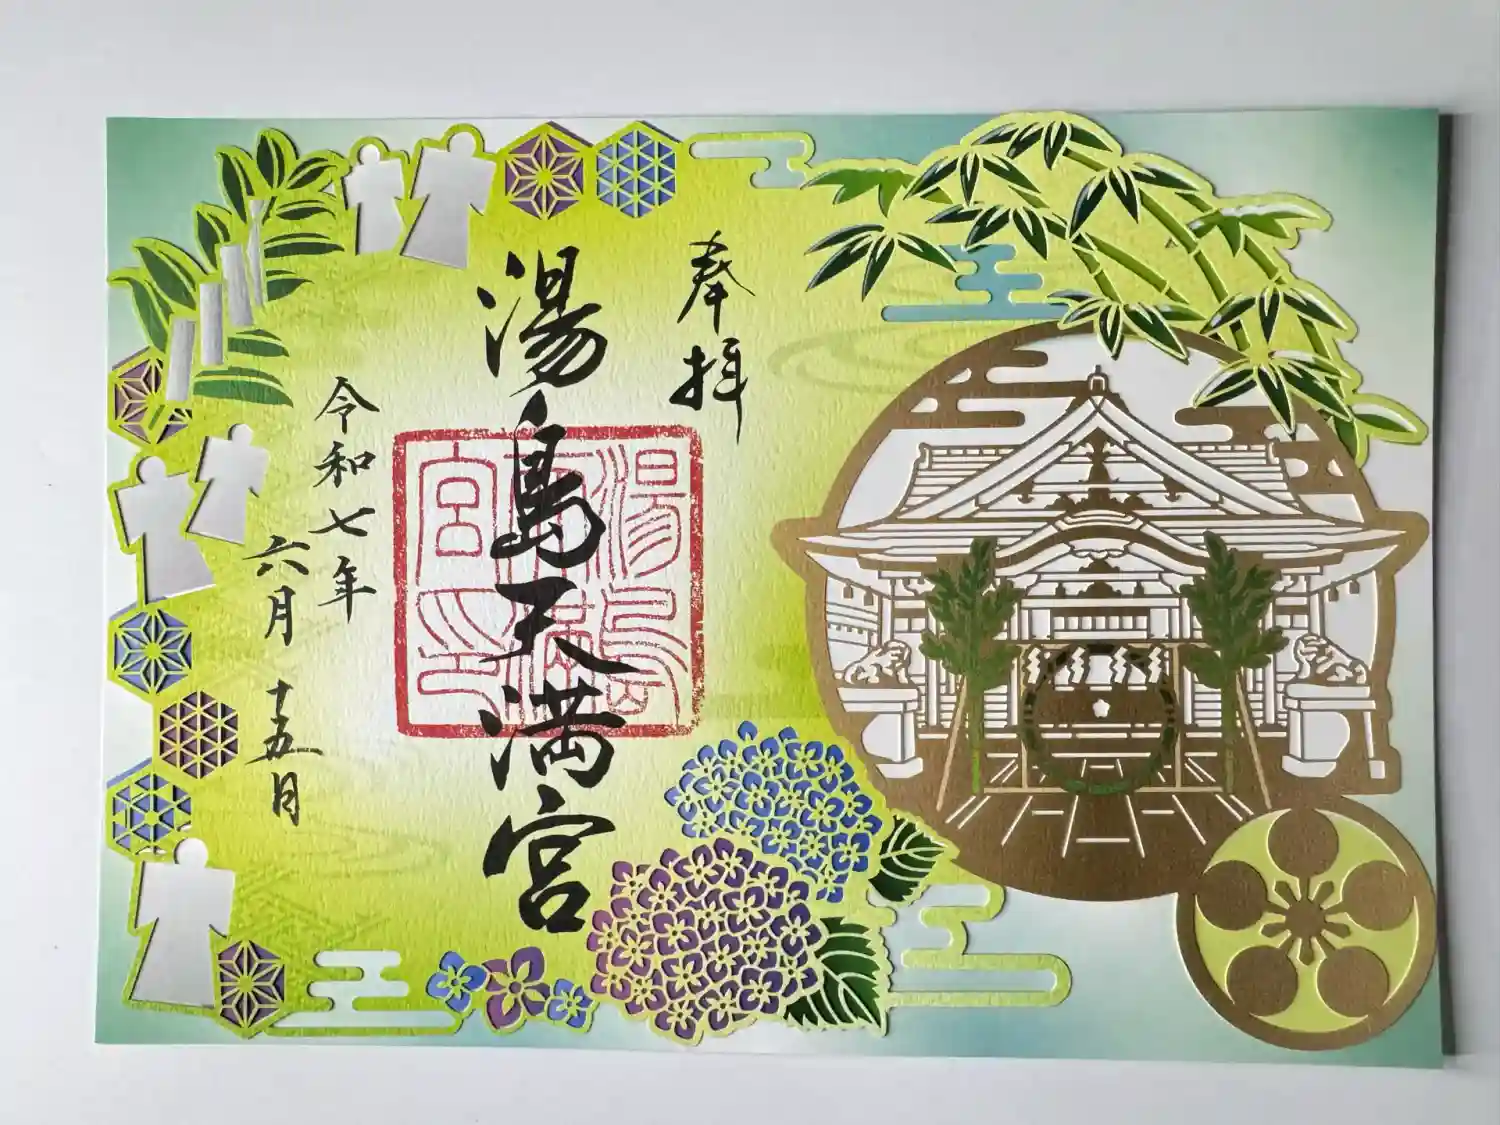 奉拝
湯島天満宮
湯島
天満
宮印
令和七年
六月十五日